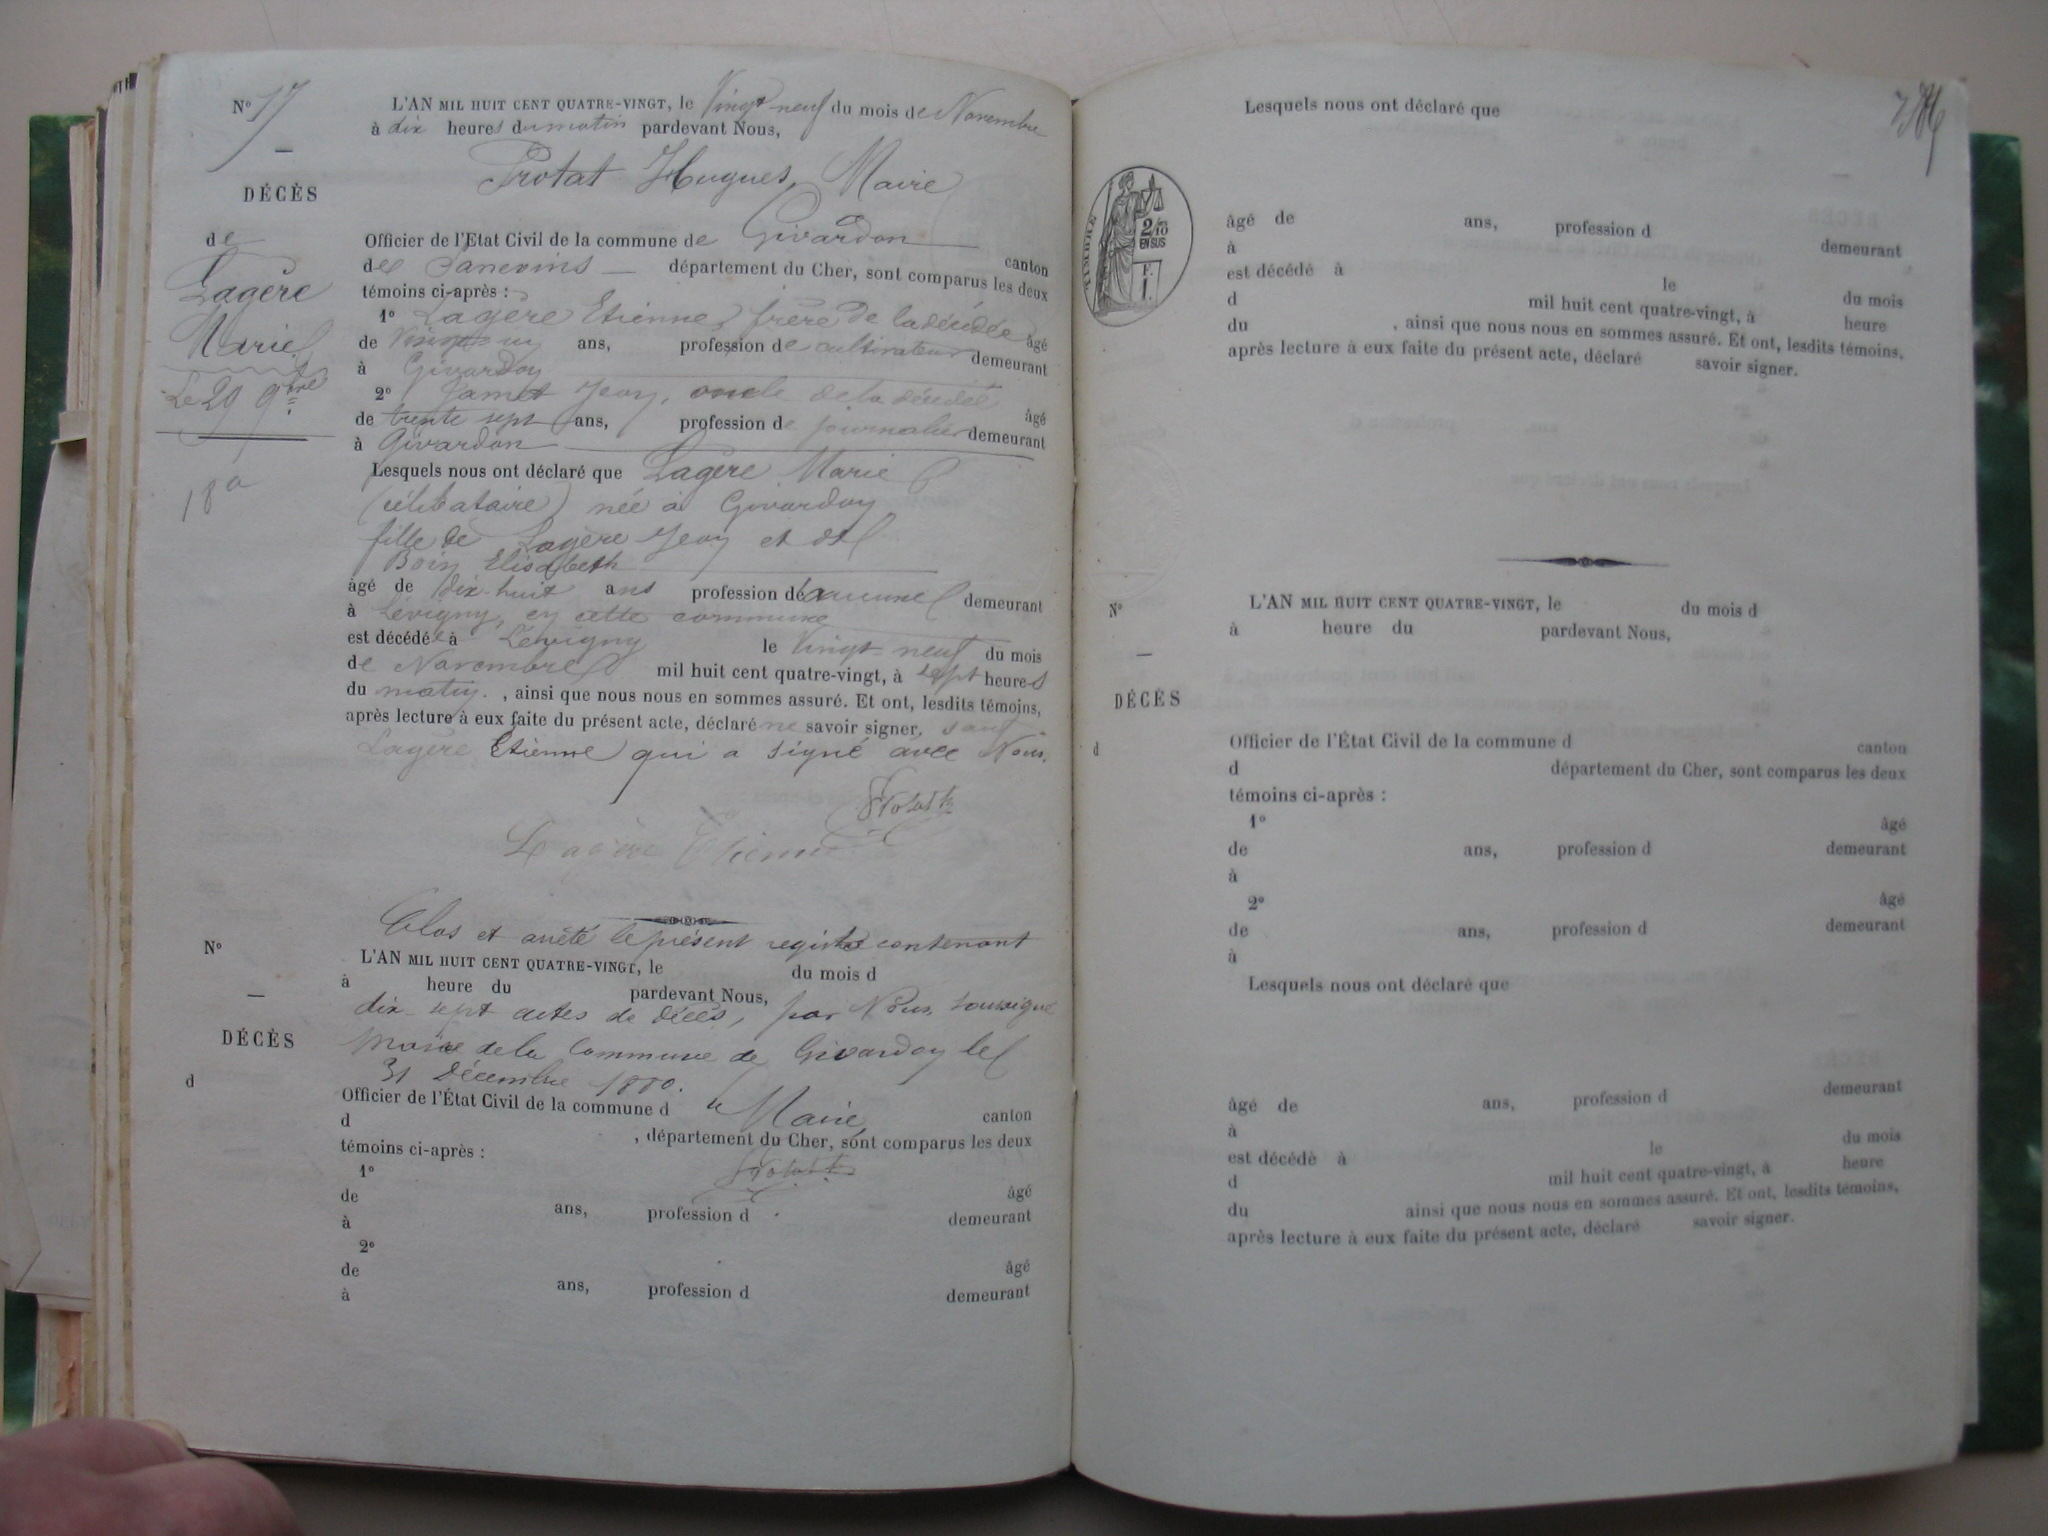 N° 17
L'AN MIL HUIT CENT QUATRE-VINGT, le Vingt-neuf du mois de Novembre
à dix heures du matin pardevant Nous,
Protat Hugues, Maire
DÉCÈS
Officier de l'État Civil de la commune de Givardon canton
de
de Sancoins département du Cher, sont comparus les deux
Lagère
témoins ci-après :
1° Lagère Etienne, frère de la décédée âgé
Marie
de ans, profession de cultivateur demeurant
à Givardon
Le 29 9bre
2° Jamet Jean, oncle de la décédée âgé
de trente sept ans, profession de journalier demeurant
à Givardon
Lesquels nous ont déclaré que Lagère Marie
18 a
(célibataire) née à Givardon
fille de Lagère Jean et de
Boin Elisabeth
âgé de dix-huit ans profession d'aucune demeurant
à Lévigny, en cette commune
est décédée à Lévigny le Vingt-neuf du mois
de Novembre mil huit cent quatre-vingt, à sept heures
du matin. , ainsi que nous nous en sommes assuré. Et ont, lesdits témoins,
après lecture à eux faite du présent acte, déclaré ne savoir signer, sauf
Lagère Etienne qui a signé avec Nous.
Protat h
Lagère Etienne
Clos et arrêté le présent registre contenant
N°
L'AN MIL HUIT CENT QUATRE-VINGT, le du mois d
à heure du pardevant Nous,
dix-sept actes de décès, par Nous, soussigné
DÉCÈS
Maire de la Commune de Givardon le
31 Décembre 1880.
d
Officier de l'État Civil de la commune d canton
le Maire,
d , département du Cher, sont comparus les deux
témoins ci-après :
Protat h
1° âgé
de ans, profession d demeurant
à
2° âgé
de ans, profession d demeurant
à
Lesquels nous ont déclaré que
TIMBRE
2/10
EN SUS
âgé de ans, profession d demeurant
à
est décédé à le du mois
d mil huit cent quatre-vingt, à heure
du , ainsi que nous nous en sommes assuré. Et ont, lesdits témoins,
après lecture à eux faite du présent acte, déclaré savoir signer.
N°
L'AN MIL HUIT CENT QUATRE-VINGT, le du mois d
à heure du pardevant Nous,
DÉCÈS
d
Officier de l'État Civil de la commune d canton
d département du Cher, sont comparus les deux
témoins ci-après :
1° âgé
de ans, profession d demeurant
à
2° âgé
de ans, profession d demeurant
à
Lesquels nous ont déclaré que
âgé de ans, profession d demeurant
à
est décédé à le du mois
d mil huit cent quatre-vingt, à heure
du ainsi que nous nous en sommes assuré. Et ont, lesdits témoins,
après lecture à eux faite du présent acte, déclaré savoir signer.